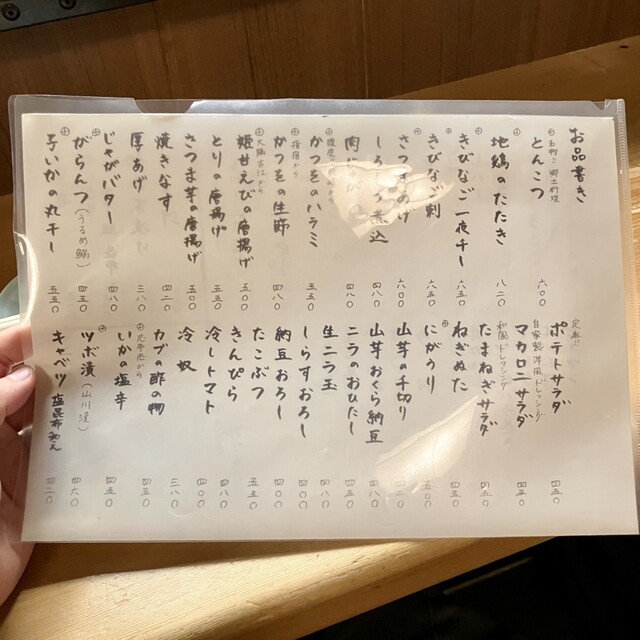 お品書き
とんこつ 六〇〇
名物!! 郷土料理
地鶏のたたき 八二〇
きびなご一夜干し 六五〇
きびなご刺 六五〇
さつまあげ 六〇〇
煮込 四八〇
四八〇
かつをのハラミ 五五〇
指宿から
かつをの生節 四八〇
大隅
姫甘えびの唐揚げ 五〇〇
とりの唐揚げ 五五〇
さつま芋の唐揚げ 五〇〇
焼きなす 四二〇
厚あげ 三八〇
じゃがバター 四八〇
がらんつ(うるめ鰯) 四五〇
子いかの丸干し 五五〇
定番!!
ポテトサラダ 四五〇
自家製 洋風ドレッシング
マカロニサラダ 四五〇
和風ドレッシング
たまねぎサラダ 四五〇
ねぎぬた 四五〇
にがうり 五〇〇
山芋の千切り 四二〇
山芋おくら納豆 四八〇
ニラのおひたし 四五〇
生ニラ玉 四八〇
しらすおろし 四〇〇
納豆おろし 四〇〇
たこぶつ 五五〇
きんぴら 四八〇
冷しトマト 四〇〇
冷奴 三八〇
カブの酢の物 四五〇
いかの塩辛 四五〇
ツボ漬(山川漬) 四六〇
キャベツ塩昆布和え 四二〇